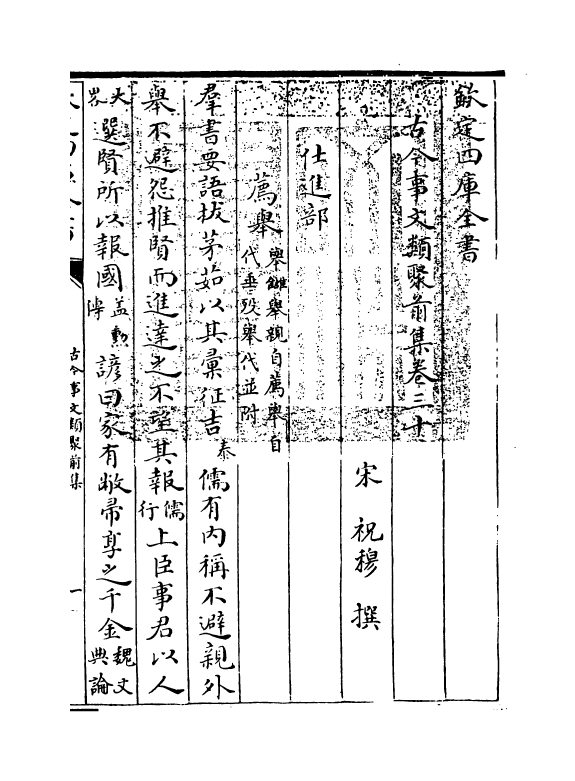 欽定四庫全書
古今事文類聚前集卷三十
宋 祝穆 撰
仕進部
薦舉 舉讎舉親自薦舉自
代垂歿舉代並附
羣書要語拔茅茹以其彙征吉 泰 儒有内稱不避親外
舉不避怨推賢而進達之不望其報 儒行 上臣事君以人
大畧 選賢所以報國 蓋勲傳 諺曰家有敝帚享之千金 魏文典論
古今事文類聚前集
一